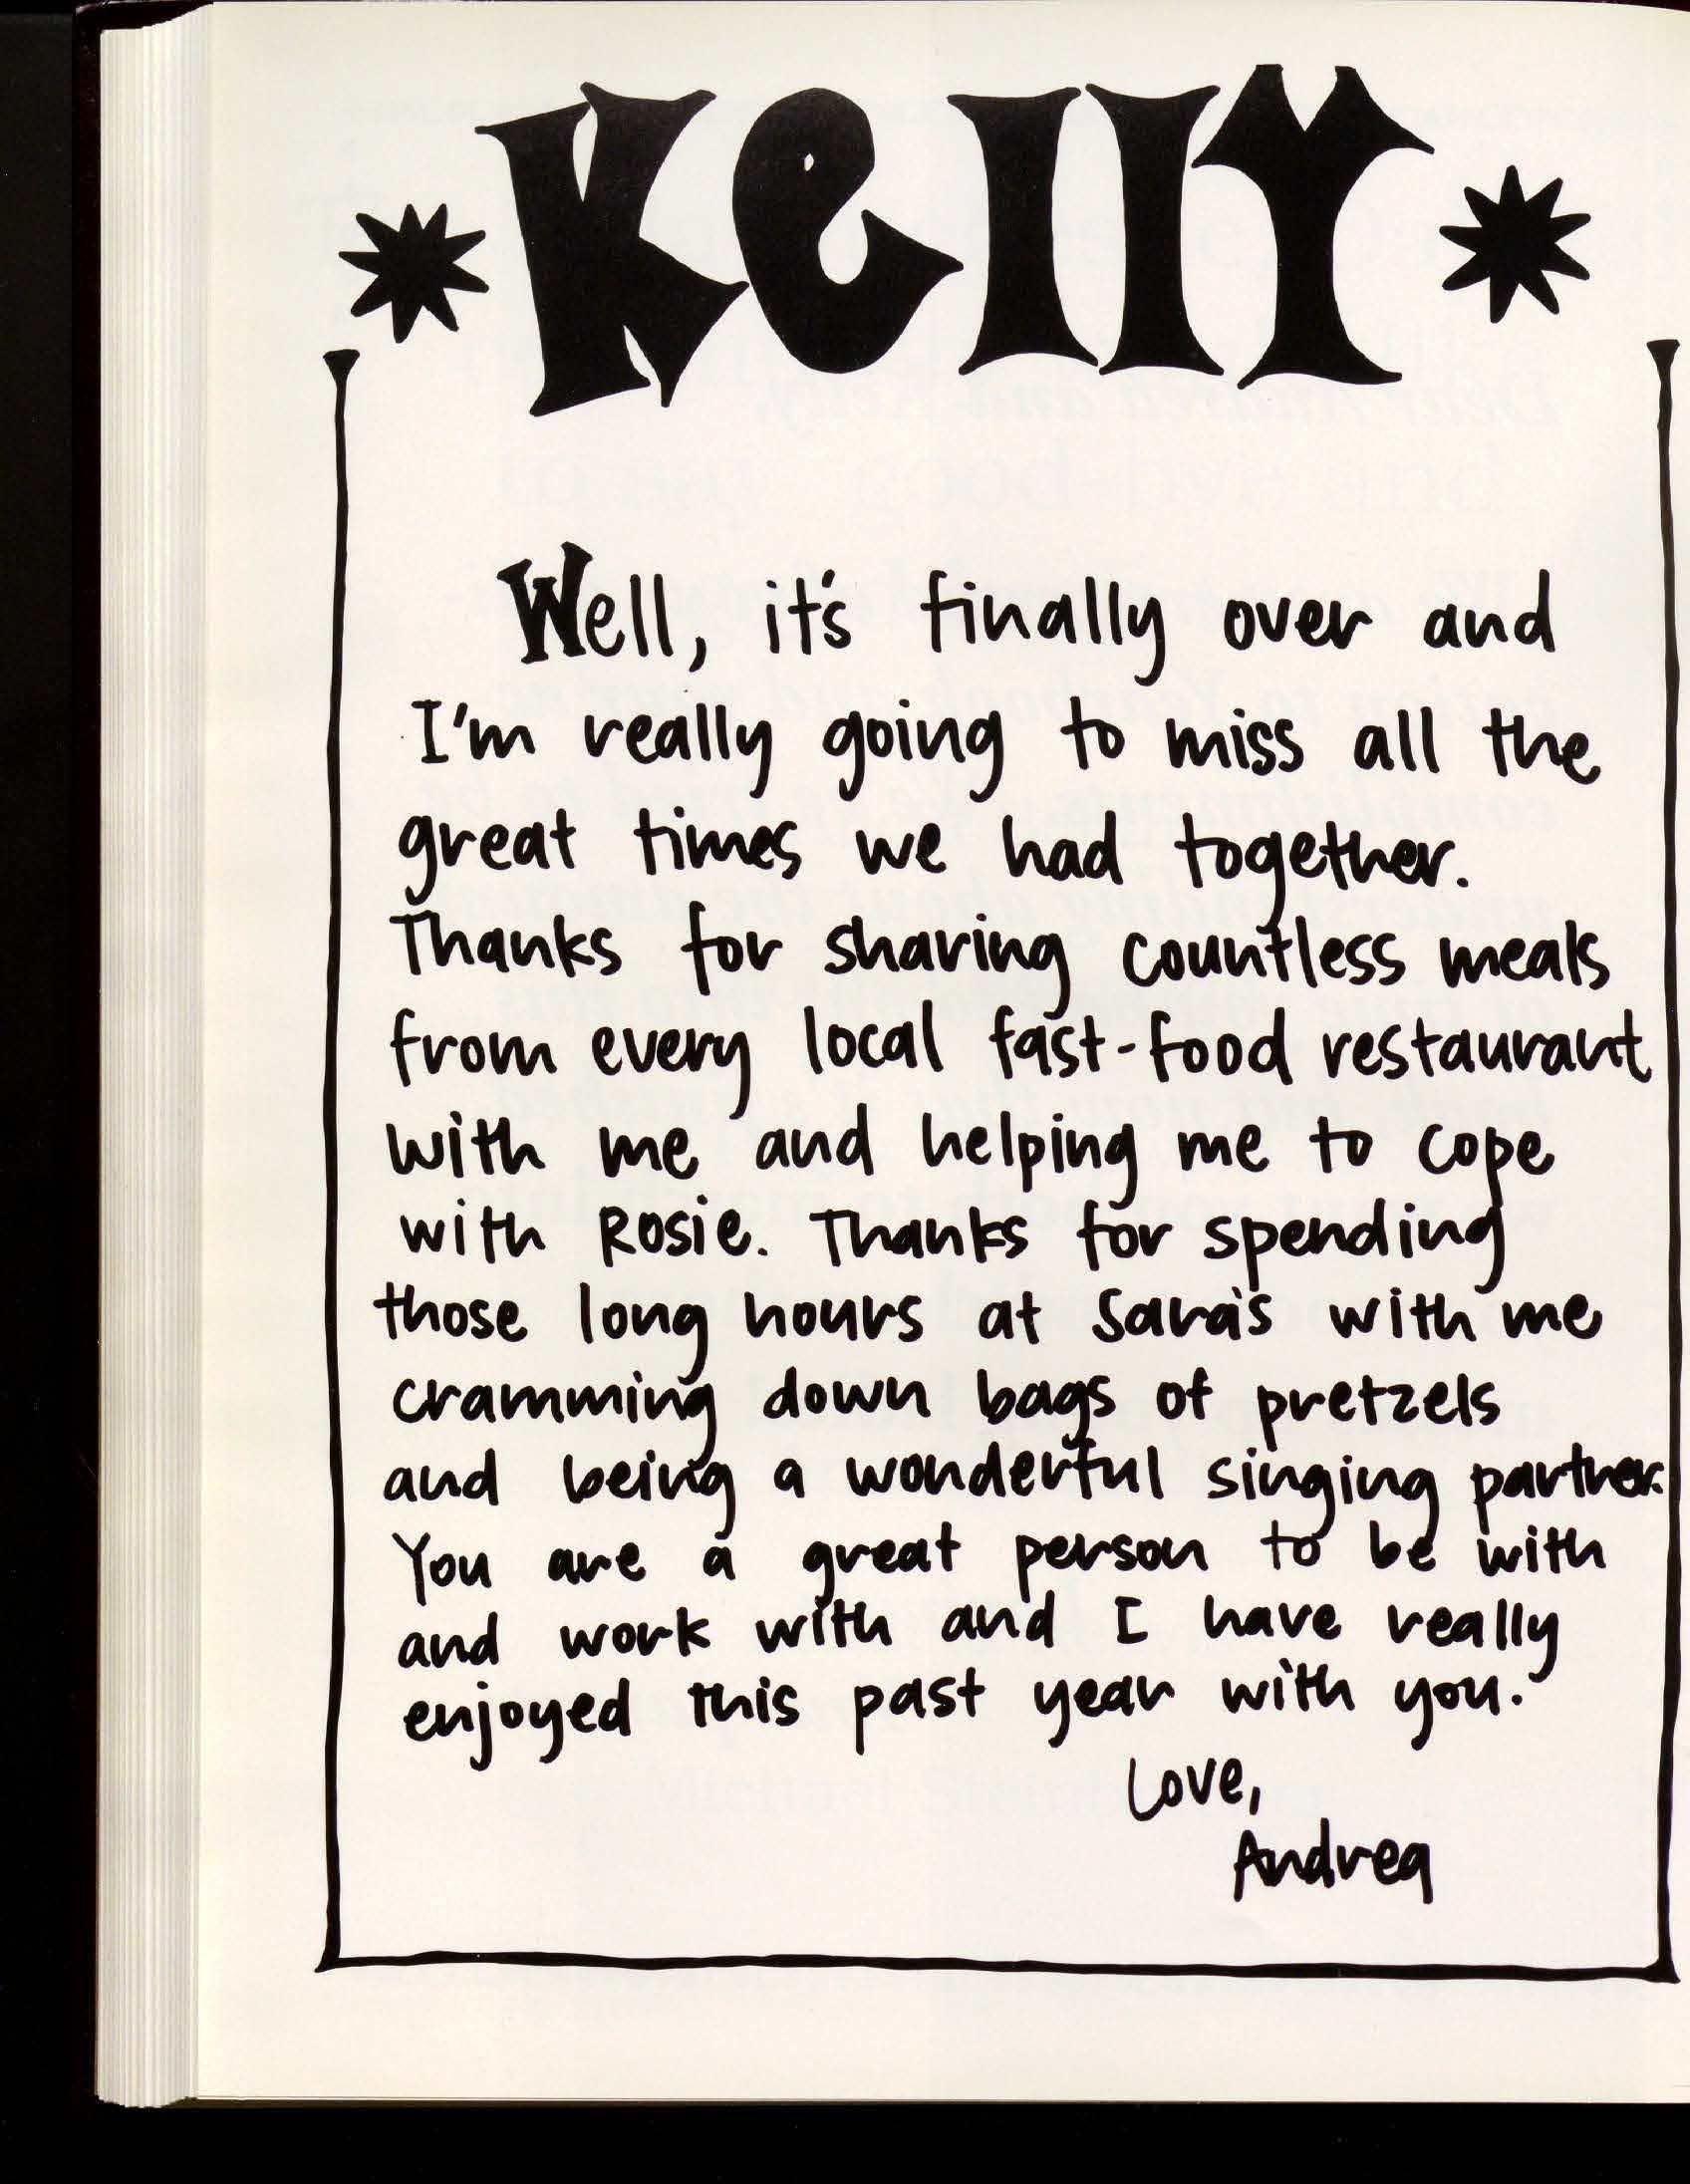 Kelly
Well, it's finally over and
I'm really going to miss all the
great times we had together.
Thanks for sharing countless meals
from every local fast-food restaurant
with me and helping me to cope
with Rosie. Thanks for spending
those long hours at Sara's with me
cramming down bags of pretzels
and being a wonderful singing partner.
You are a great person to be with
and work with and I have really
enjoyed this past year with you.
Love,
Andrea